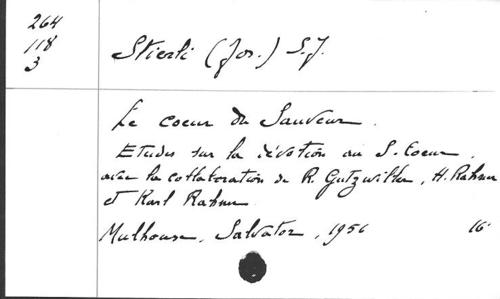 264
118
3
Stierli (Jos.) S.J.
Le coeur du Sauveur.
Etudes sur la dévotion au S. Coeur,
avec la collaboration de R. Gutzwiller, H. Rahner
et Karl Rahner
Mulhouse, Salvator, 1956 16°